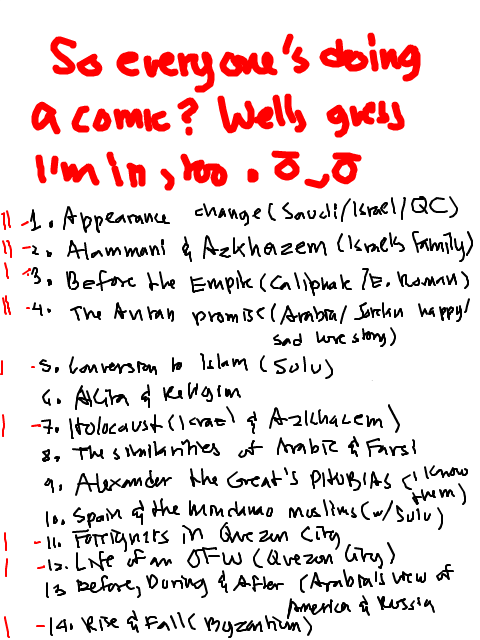 So everyone's doing
a comic? Well, guess
I'm in, too. ō_ō
1. Appearance change (Saudi/Israel/QC)
2. Alammani & Azkhazem (Israel's family)
3. Before the Empire (Caliphate/E. Roman)
4. The promise (Arabia/Jordan happy/
sad love story)
5. Conversion to Islam (Sulu)
6. & Religion
7. Holocaust (Israel & Azkhazem)
8. The similarities of Arabic & Farsi
9. Alexander the Great's PHOBIAS (I know
them)
10. Spain & the Mindanao muslims (w/ Sulu)
11. Foreigners in Quezon City
12. Life of an OFW (Quezon City)
13 Before, During & After (Arabia's view of
America & Russia
14. Rise & Fall (Byzantium)